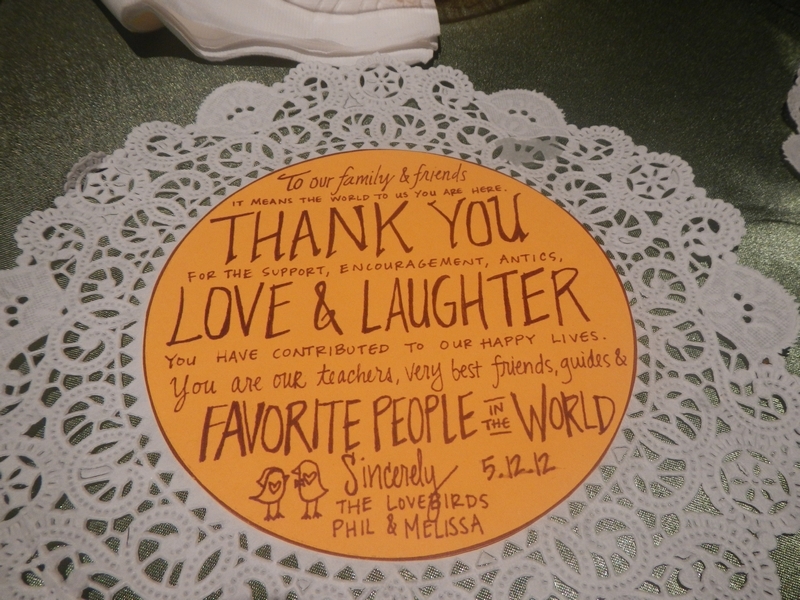 To our family & friends
IT MEANS THE WORLD TO US YOU ARE HERE.
THANK YOU
FOR THE SUPPORT, ENCOURAGEMENT, ANTICS,
LOVE & LAUGHTER
YOU HAVE CONTRIBUTED TO OUR HAPPY LIVES.
You are our teachers, very best friends, guides &
FAVORITE PEOPLE IN THE WORLD
Sincerely 5.12.12
THE LOVEBIRDS
PHIL & MELISSA